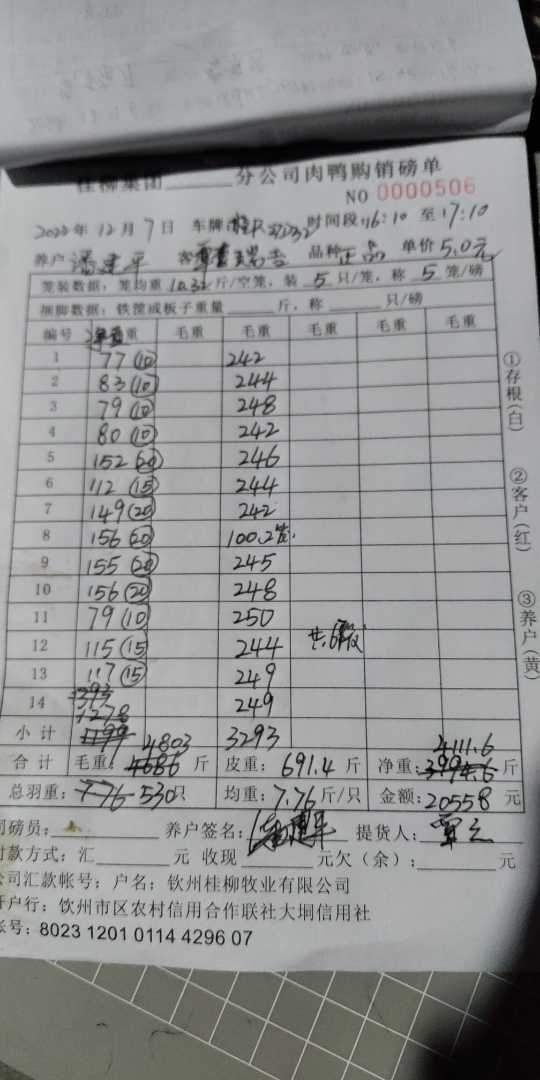 桂柳集团 分公司肉鸭购销磅单
NO 0000506
2022年12月7日 车牌 时间段16:10至17:10
养户 潘建平 客 品种正品 单价5.0元
笼装数据:笼均重10.32斤/空笼,装5只/笼,称5笼/磅
捆脚数据:铁筐或板子重量 斤,称 只/磅
编号 重 毛重 毛重 毛重 毛重 毛重
1 77(10) 242
2 83(10) 244
3 79(10) 248
4 80(10) 242
5 152(20) 246
6 112(15) 244
7 149(20) 242
8 156(20) 100.2
9 155(20) 245
10 156(20) 248
11 79(10) 250
12 115(15) 244
13 117(15) 249
14 249
小计 3293
合计 毛重:4803斤 皮重:691.4斤 净重:4111.6斤
总羽重:530只 均重:7.76斤/只 金额:20558元
司磅员: 养户签名: 提货人:
付款方式:汇 元 收现 元欠(余): 元
公司汇款帐号:户名:钦州桂柳牧业有限公司
开户行:钦州市区农村信用合作联社大垌信用社
帐号:8023 1201 0114 4296 07
①存根(白)
②客户(红)
③养户(黄)